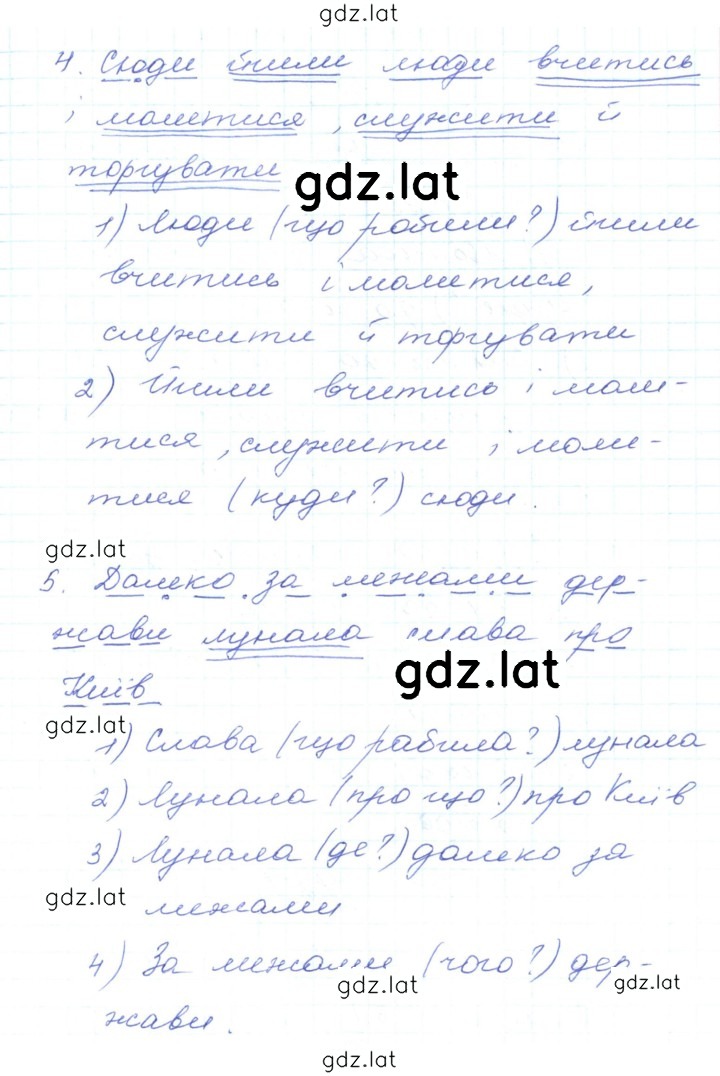 gdz.lat
4. Сюди йшли люди вчитись
і молитися, служити й
торгувати
gdz.lat
1) Люди (що робили?) йшли
вчитись і молитися,
служити й торгувати
2) Йшли вчитись і моли-
тися, служити і моли-
тися (куди?) сюди.
gdz.lat
5. Далеко за межами дер-
жави лунала слава про
gdz.lat
Київ
gdz.lat
1) Слава (що рабила?) лунала
2) Лунала (про що?) про Київ
3) Лунала (де?) далеко за
gdz.lat
межами
4) За межами (чого?) дер-
gdz.lat
gdz.lat
жави.
gdz.lat